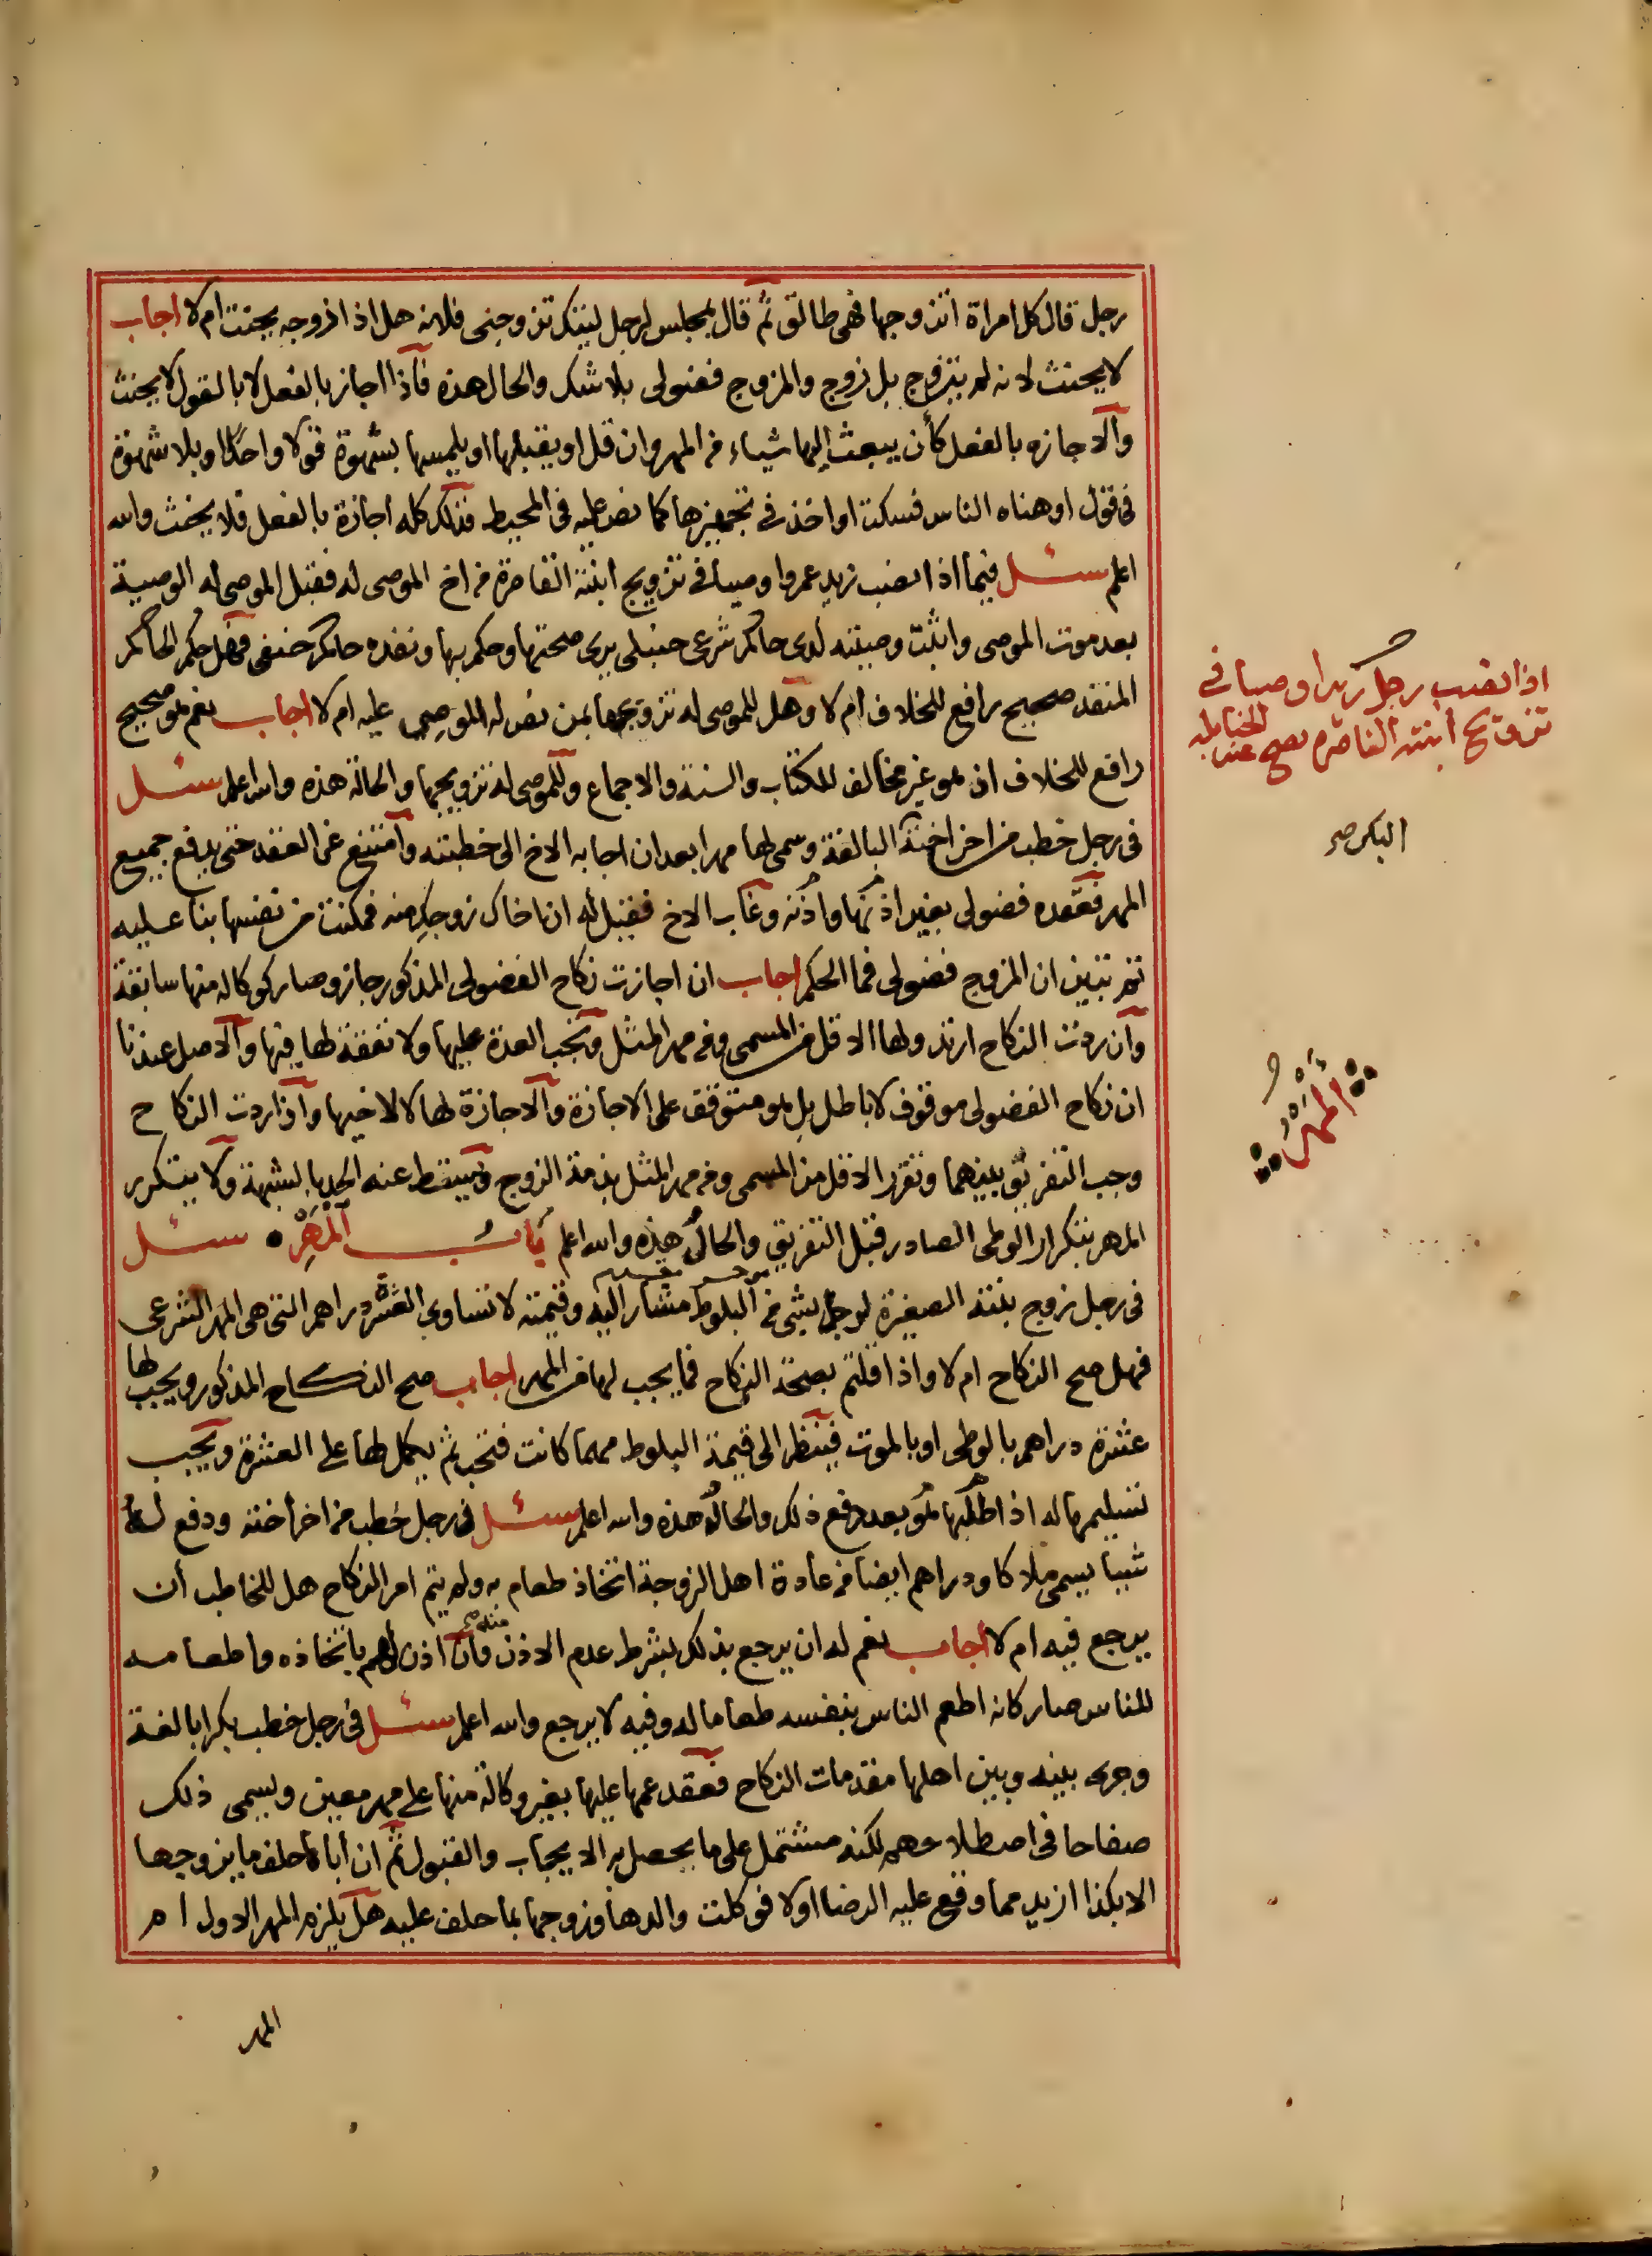 رجل قال كل امراة اتزوجها فهى طالق ثم قال بمجلس لرجل ليتك تزوجنى فلانه هل اذا زوجه يحنث ام لا اجاب
لا يحنث لانه لم يتزوج بل زوج والمزوج فضولى بلا شك والحال هذه فاذا اجاز بالفعل لا بالقول لا يحنث
والاجازه بالفعل كأن يبعث اليها شياء من المهر وان قل او يقبلها او يلمسها بشهوة قولا واحدا او بلا شهوة
فى قول او هناه الناس فسكت او اخذ فى تجهيزها كما نص عليه فى المحيط فذلك كله اجازة بالفعل فلا يحنث والله
اعلم سئل فيما اذا نصب زيد عمروا وصيا فى تزويج ابنته القاصرة من اخ الموصى له فقبل الموصى له الوصية
بعد موت الموصى واثبت وصيته لدى حاكم شرعى حنبلى يرى صحتها وحكم بها ونفذه حاكم حنفى فهل حكم الحاكم
المنفذ صحيح رافع للخلاف ام لا وهل للموصى له تزويجها بمن نص له الموصى عليه ام لا اجاب نعم هو صحيح
رافع للخلاف اذ هو غير مخالف للكتاب والسنة والاجماع وللموصى له تزويجها والحالة هذه والله اعلم سئل
فى رجل خطب من اخر اخته البالغة وسمى لها مهرا بعد ان اجابه الاخ الى خطبته وامتنع عن العقد حتى يدفع جميع
المهر فعقده فضولى بغير اذنها واذنه وغاب الاخ فقيل له ان اخاك زوجك منه فمكنت من نفسها بنا عليه
ثم تبين ان المزوج فضولى فما الحكم اجاب ان اجازت نكاح الفضولى المذكور جاز وصار كوكاله منها سابقة
وان ردت النكاح ارتد ولها الاقل من المسمى ومن مهر المثل وتجب العدة عليها ولا نفقة لها فيها والاصل عندنا
ان نكاح الفضولى موقوف لا باطل بل هو متوقف على الاجازة والاجازة لها لا لاخيها واذا ردت النكاح
وجب التفريق بينهما وتقرر الاقل من المسمى ومن مهر المثل بذمة الزوج ويسقط عنه الحد بالشبهة ولا يتكرر
المهر بتكرار الوطى الصادر قبل التفريق والحال هذه والله اعلم باب المهر سئل
فى رجل زوج بنته الصغيرة لرجل بشى من البلوط مشار اليه وقيمته لا تساوي العشرة دراهم التى هى المهر الشرعى
فهل صح النكاح ام لا واذا قلتم بصحة النكاح فما يجب لها من المهر اجاب صح النكاح المذكور ويجب لها
عشرة دراهم بالوطى او بالموت فينظر الى قيمة البلوط مهما كانت فتحسب ثم يكمل لها على العشرة ويجب
تسليمها له اذا طلبها هو بعد دفع ذلك والحال هذه والله اعلم سئل فى رجل خطب من اخر أخته ودفع له
شيا يسمى ملاكا ودراهم ايضا من عادة اهل الزوجة اتخاذ طعام به ولم يتم امر النكاح هل للخاطب أن
يرجع فيه ام لا اجاب نعم له ان يرجع بذلك بشرط عدم الاذن منه صح فان اذن لهم باتخاذه واطعامه
للناس صار كانه اطعم الناس بنفسه طعاما له وفيه لا يرجع والله اعلم سئل فى رجل خطب بكرا بالغة
وجرى بينه وبين اهلها مقدمات النكاح فعقد عمها عليها بغير وكالة منها على مهر معين ويسمى ذلك
صفاحا فى اصطلاحهم لكنه مشتمل على ما يحصل به الايجاب والقبول ثم ان أباها حلف ما يزوجها
الا بكذا ازيد مما وقع عليه الرضا اولا فوكلت والدها وزوجها بما حلف عليه هل يلزم المهر الاول ام
المهر
اذا نصب رجل زيدا وصيا فى
تزويج ابنته القاصرة يصح عند الحنابلة
المهر